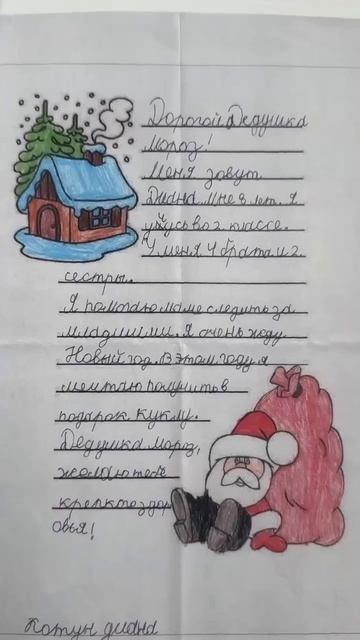 Дорогой Дедушка
Мороз!
Меня зовут
Диана мне 8 лет. Я
учусь во 2 классе.
У меня 4 брата и 2
сестры.
Я помогаю маме следить за
младшими. Я очень жду
Новый год. В этом году я
мечтаю получить в
подарок куклу.
Дедушка Мороз,
желаю тебе
крепкого здор
овья!
Котун диана